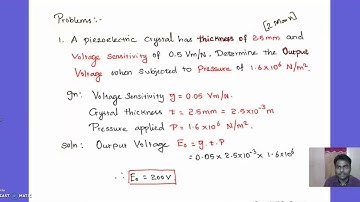 Problems:-
[2 Mark]
1. A piezoelectric crystal has thickness of 2.5mm and
Voltage Sensitivity of 0.5 Vm/N. Determine the Output
Voltage when subjected to Pressure of 1.6×10⁶ N/m².
Gn: Voltage Sensitivity g = 0.05 Vm/N.
Crystal thickness t = 2.5mm = 2.5×10⁻³m
Pressure applied P = 1.6×10⁶ N/m².
Soln: Output Voltage E₀ = g.t.P
= 0.05 × 2.5×10⁻³ × 1.6×10⁶
∴ E₀ = 200V